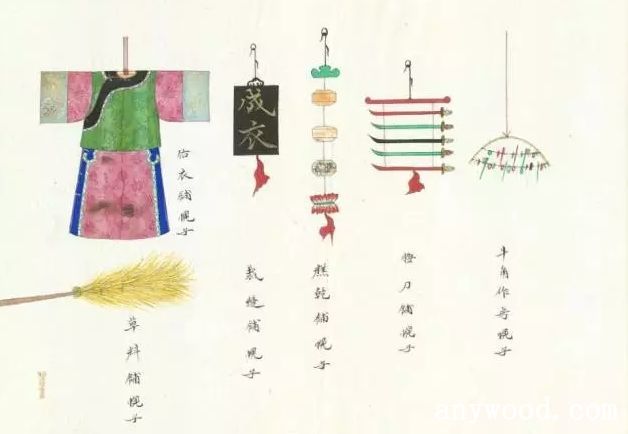 估衣舖幌子
成衣
草料舖幌子
裁縫舖幌子
糕乾舖幌子
刀舖幌子
牛角作房幌子
anywood.com